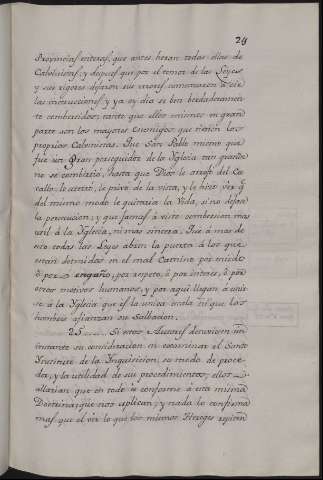 29
Provincias enteras, que antes heran todas ellas de
Calvinistas; y despues que por el temor de las Leyes
y sus rigores dejaron sus errores, comenzaron à oir
las instrucciones, y ya oy dia se ven berdaderamen
te combertidos; tanto que ellos mismos en gran
parte son los mayores Enemigos que tienen los
proprios Calvinistas. Que San Pablo mismo que
fue un gran perseguidor de la Yglesia tan grande
no se combirtio, hasta que Dios le arrojó del Ca
vallo, le aterró, le privó de la vista, y le hizo ver q̃
del mismo modo le quitaria la Vida, si no dejava
la persecucion; y que jamas à visto combersion mas
util à la Yglesia, ni mas sincera. Que à mas de
esto todas las Leyes abren la puerta à los que
estan detenidos en el mal Camino por miedo
ò por engaño, por respeto, ò por interes, ò por
otros motivos humanos, y por aqui llegan à unir
se à la Yglesia que es la unica escala en que los
hombres afianzan su Salbacion.
25 Si estos Autores detuviesen un
instante su consideracion en examinar el Santo
Instituto de la Inquisicion, su modo de proce
der, y la utilidad de sus procedimientos, ellos
allarian que en todo se conforma à esta misma
Doctrina, que nos aplican; y nada lo confirma
mas que el ver lo que los mismos Hereges